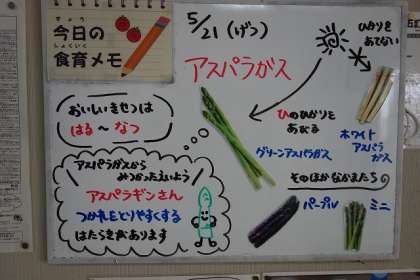 きょう
今日の
しょくいく
食育メモ
5/21(げつ)
アスパラガス
ひかりを
あてない
ホワイト
アスパラ
ガス
ひのひかりを
あびる
グリーンアスパラガス
おいしいきせつは
はる～なつ
アスパラガスから
みつかったえいよう
アスパラギンさん
つかれをとりやすくする
はたらきがあります
そのほかなかまたち
パープル
ミニ